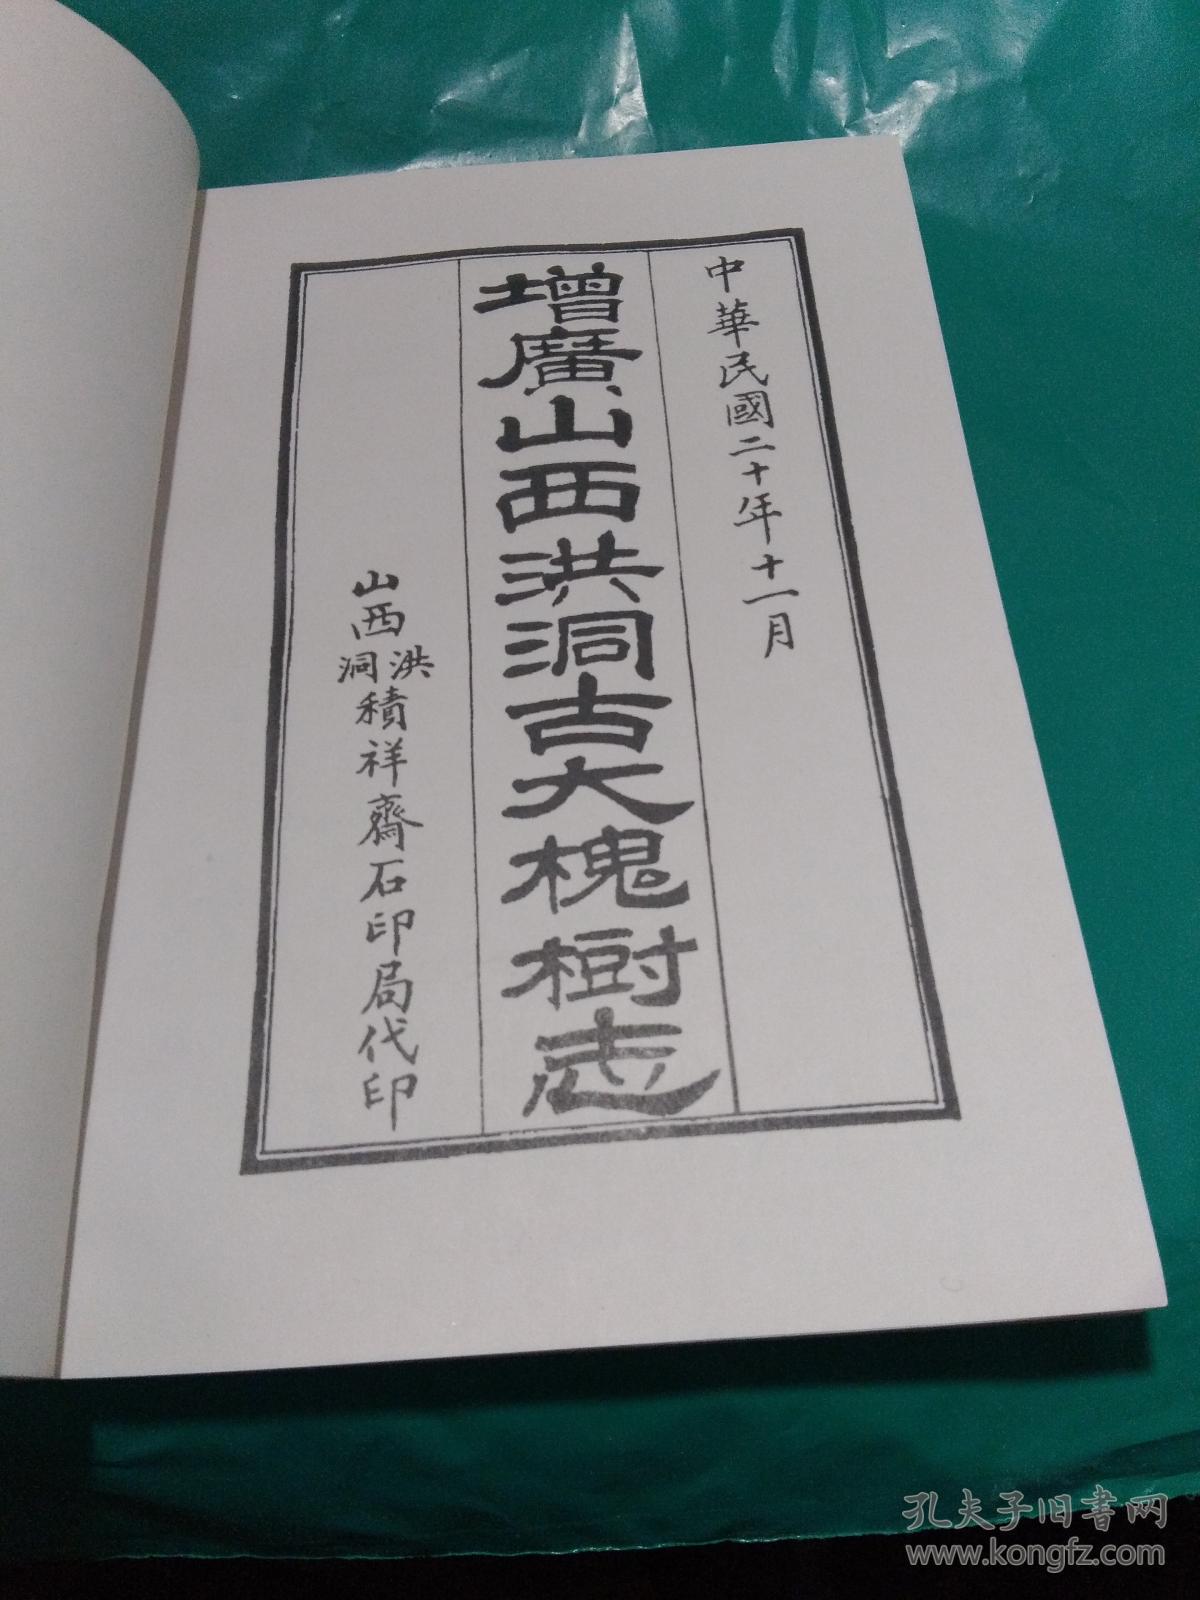 中華民國二十年十一月
增廣山西洪洞古大槐樹志
山西洪洞積祥齋石印局代印
孔夫子旧書网
www.kongfz.com